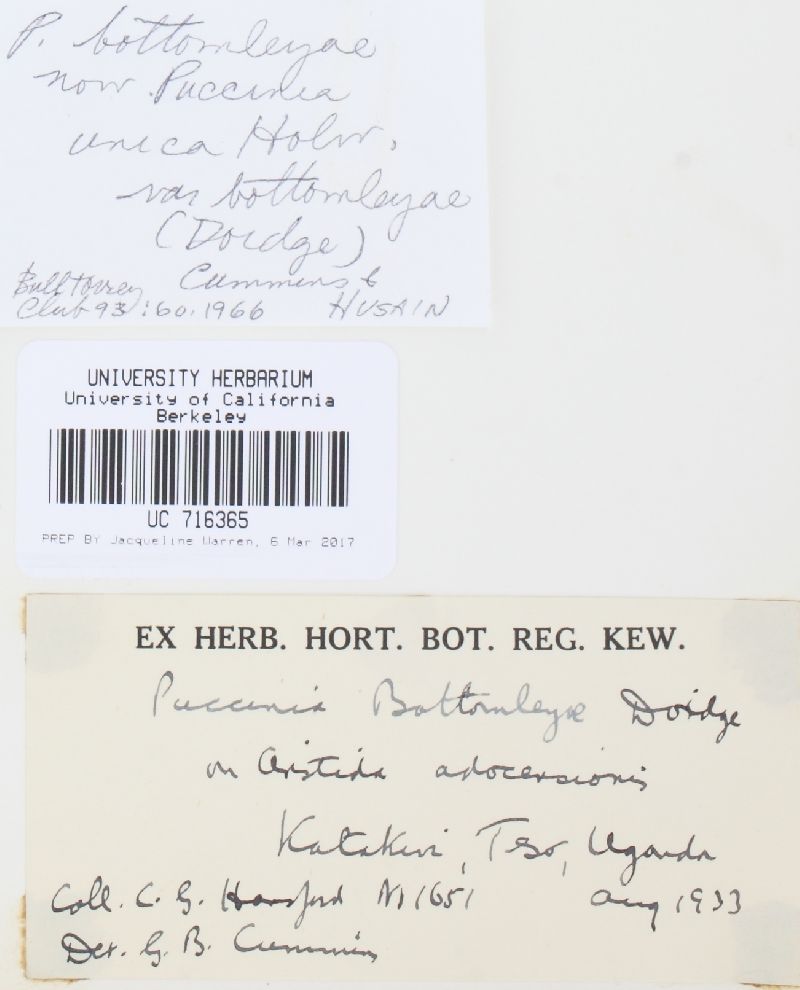 P. bottomleyae
now Puccinia
unica Holw.
var bottomleyae
(Doidge)
Cummins &
HUSAIN
Bull Torrey
Club 93:60.1966
UNIVERSITY HERBARIUM
University of California
Berkeley
UC 716365
PREP BY Jacqueline Warren, 6 Mar 2017
EX HERB. HORT. BOT. REG. KEW.
Puccinia Bottomleyae Doidge
on Aristida adocensionis
Katakwi, Teso, Uganda
Coll. C. G. Hansford No 1651 Aug 1933
Det. G. B. Cummins